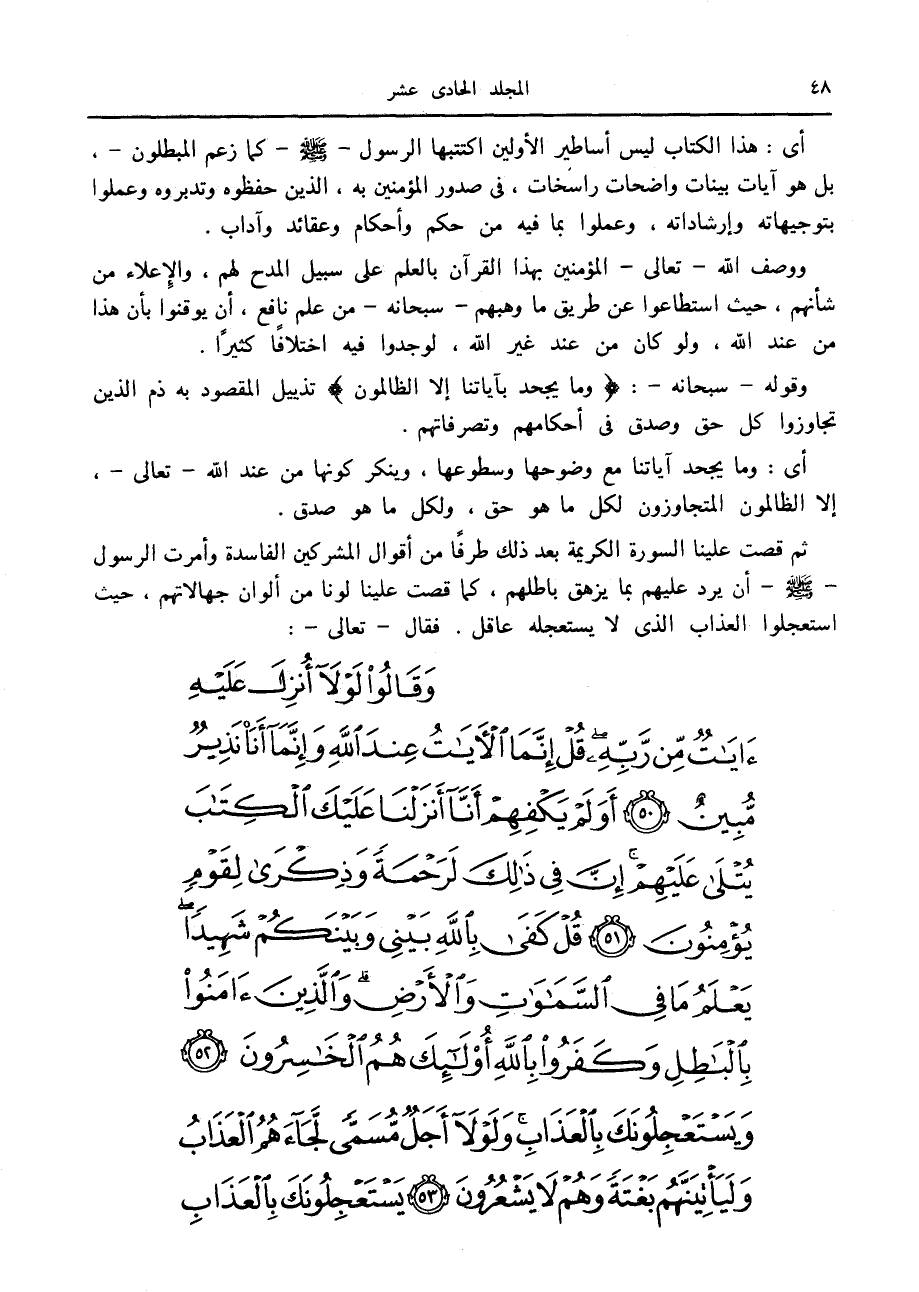 ٤٨ المجلد الحادى عشر
أى : هذا الكتاب ليس أساطير الأولين اكتتبها الرسول - ﷺ - كما زعم المبطلون - ،
بل هو آيات بينات واضحات راسخات ، فى صدور المؤمنين به ، الذين حفظوه وتدبروه وعملوا
بتوجيهاته وإرشاداته ، وعملوا بما فيه من حكم وأحكام وعقائد وآداب .
ووصف الله - تعالى - المؤمنين بهذا القرآن بالعلم على سبيل المدح لهم ، والإعلاء من
شأنهم ، حيث استطاعوا عن طريق ما وهبهم - سبحانه - من علم نافع ، أن يوقنوا بأن هذا
من عند الله ، ولو كان من عند غير الله ، لوجدوا فيه اختلافًا كثيرًا .
وقوله - سبحانه - : ﴿ وما يجحد بآياتنا إلا الظالمون ﴾ تذييل المقصود به ذم الذين
تجاوزوا كل حق وصدق فى أحكامهم وتصرفاتهم .
أى : وما يجحد آياتنا مع وضوحها وسطوعها ، وينكر كونها من عند الله - تعالى - ،
إلا الظالمون المتجاوزون لكل ما هو حق ، ولكل ما هو صدق .
ثم قصت علينا السورة الكريمة بعد ذلك طرفًا من أقوال المشركين الفاسدة وأمرت الرسول
- ﷺ - أن يرد عليهم بما يزهق باطلهم ، كما قصت علينا لونا من ألوان جهالاتهم ، حيث
استعجلوا العذاب الذى لا يستعجله عاقل . فقال - تعالى - :
وَقَالُوا۟ لَوْلَآ أُنزِلَ عَلَيْهِ
ءَايَٰتٌ مِّن رَّبِّهِۦ ۖ قُلْ إِنَّمَا ٱلْءَايَٰتُ عِندَ ٱللَّهِ وَإِنَّمَآ أَنَا۠ نَذِيرٌ
مُّبِينٌ ٥٠ أَوَلَمْ يَكْفِهِمْ أَنَّآ أَنزَلْنَا عَلَيْكَ ٱلْكِتَٰبَ
يُتْلَىٰ عَلَيْهِمْ ۚ إِنَّ فِى ذَٰلِكَ لَرَحْمَةً وَذِكْرَىٰ لِقَوْمٍ
يُؤْمِنُونَ ٥١ قُلْ كَفَىٰ بِٱللَّهِ بَيْنِى وَبَيْنَكُمْ شَهِيدًا ۖ
يَعْلَمُ مَا فِى ٱلسَّمَٰوَٰتِ وَٱلْأَرْضِ ۗ وَٱلَّذِينَ ءَامَنُوا۟
بِٱلْبَٰطِلِ وَكَفَرُوا۟ بِٱللَّهِ أُو۟لَٰٓئِكَ هُمُ ٱلْخَٰسِرُونَ ٥٢
وَيَسْتَعْجِلُونَكَ بِٱلْعَذَابِ ۚ وَلَوْلَآ أَجَلٌ مُّسَمًّى لَّجَآءَهُمُ ٱلْعَذَابُ
وَلَيَأْتِيَنَّهُم بَغْتَةً وَهُمْ لَا يَشْعُرُونَ ٥٣ يَسْتَعْجِلُونَكَ بِٱلْعَذَابِ